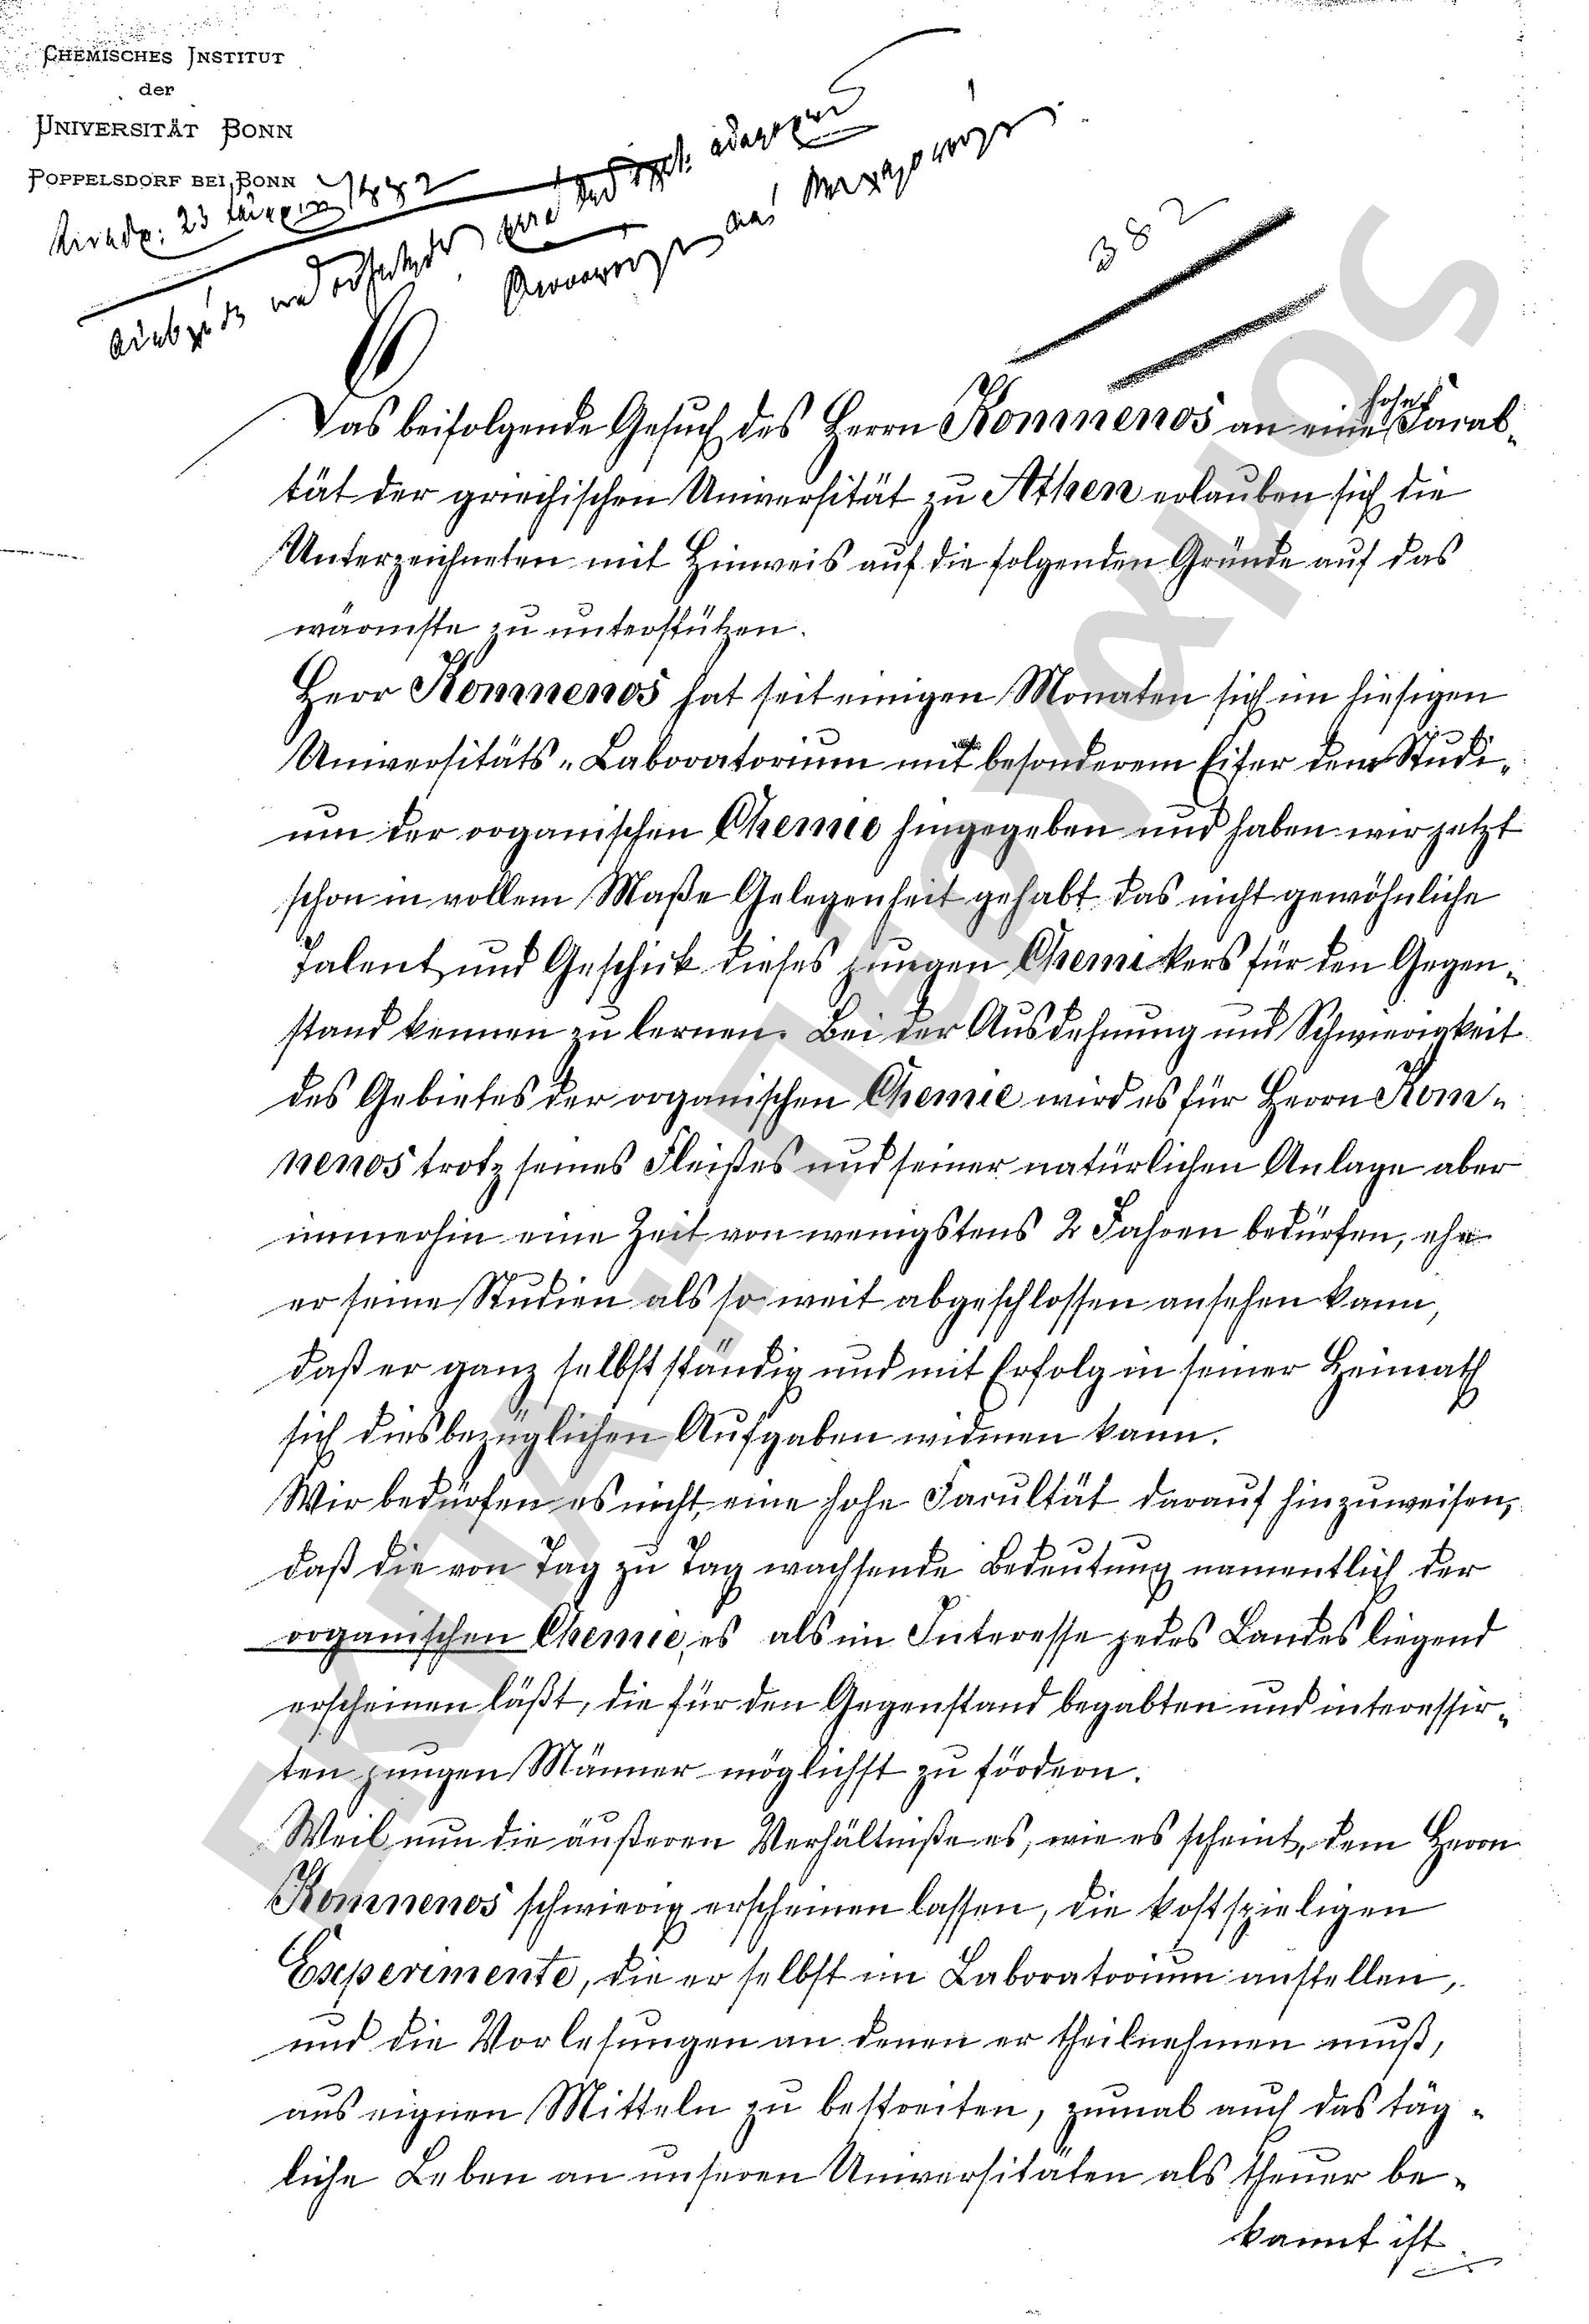 CHEMISCHES INSTITUT
der
UNIVERSITÄT BONN
POPPELSDORF BEI BONN
23 1882
382
Das beifolgende Gesuch des Herrn Komnenos an eine hohe Facul-
tät der griechischen Universität zu Athen erlauben sich die
Unterzeichneten mit Hinweis auf die folgenden Gründe auf das
wärmste zu unterstützen.
Herr Komnenos hat seit einigen Monaten sich im hiesigen
Universitäts-Laboratorium mit besonderem Eifer dem Studi-
um der organischen Chemie hingegeben und haben wir jetzt
schon in vollem Maße Gelegenheit gehabt das nicht gewöhnliche
Talent und Geschick dieses jungen Chemikers für den Gegen-
stand kennen zu lernen. Bei der Ausdehnung und Schwierigkeit
des Gebietes der organischen Chemie wird es für Herrn Kom-
nenos trotz seines Fleißes und seiner natürlichen Anlage aber
immerhin eine Zeit von wenigstens 2 Jahren bedürfen, ehe
er seine Studien als so weit abgeschlossen ansehen kann,
daß er ganz selbstständig und mit Erfolg in seiner Heimath
sich diesbezüglichen Aufgaben widmen kann.
Wir bedürfen es nicht, eine hohe Facultät darauf hinzuweisen,
daß die von Tag zu Tag wachsende Bedeutung namentlich der
organischen Chemie, es als im Interesse jedes Landes liegend
erscheinen läßt, die für den Gegenstand begabten und interessir-
ten jungen Männer möglichst zu fördern.
Weil nun die äußeren Verhältniße es, wie es scheint, dem Herrn
Komnenos schwierig erscheinen lassen, die kostspieligen
Experimente, die er selbst im Laboratorium anstellen,
und die Vorlesungen an denen er theilnehmen muß,
aus eignen Mitteln zu bestreiten, zumal auch das täg-
liche Leben an unseren Universitäten als theuer be-
kannt ist.